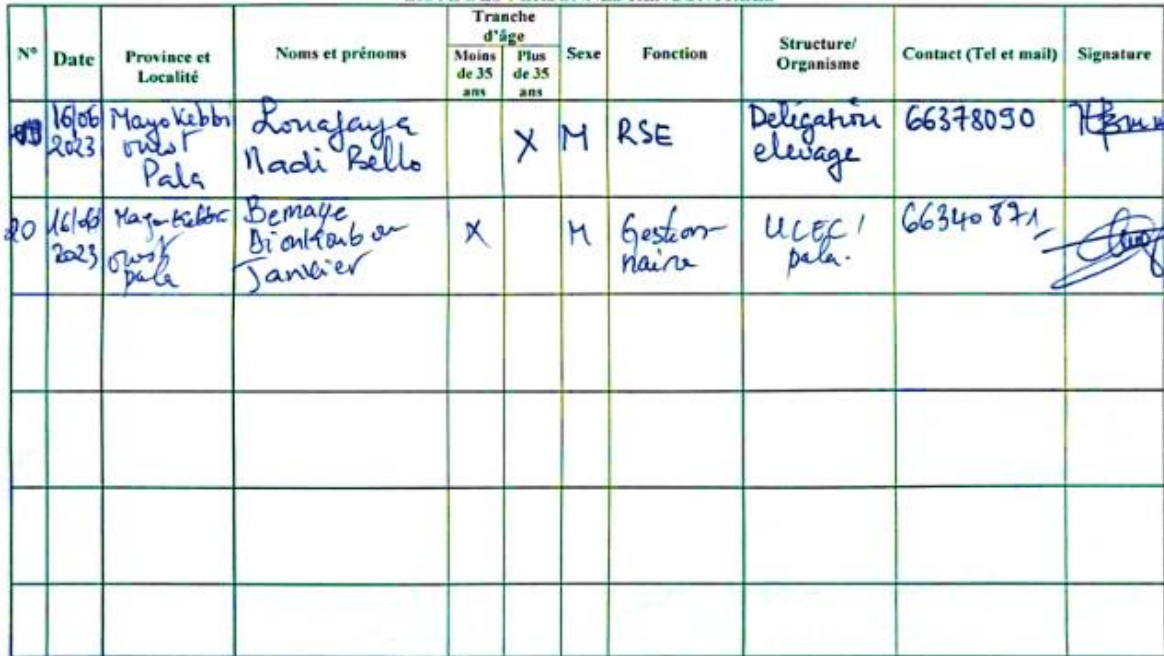 N° Date Province et Localité Noms et prénoms Tranche d'âge Moins de 35 ans Plus de 35 ans Sexe Fonction Structure/ Organisme Contact (Tel et mail) Signature
16/06 2023 Mayo Kebbi ouest Pala Nadi Bello X M RSE Delégation elevage 66378090
20 16/06 2023 Mayo-Kebbi ouest pala Bemaye Janvier X M Gestion-naire UCEC/ pala. 66340871